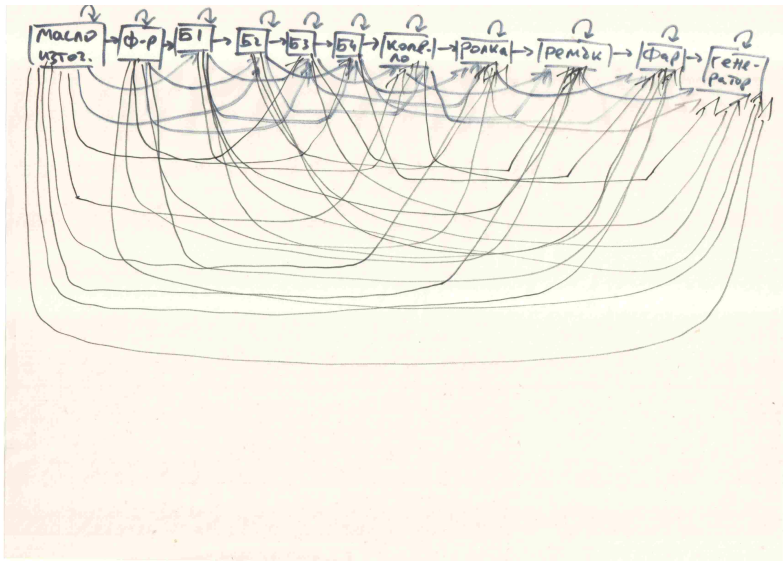 Масло
изтог.
Ф-р
Б1
Б2
Б3
Б4
Коле-
ло
Ролка
Ремък
Фар
Гене-
ратор